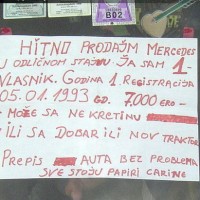 B02
HITNO PRODAJM MERCEDES
U ODLIČNOM STAJNU JA SAM 1-
VLASNIK. GODINA 1. REGISTRACIJA
05.01.1993 GD. 7.000 ERO-
- MOŽE SA NEKRETINU
- ILI SA DOBAR ILI NOV TRAKTOR
PREPIS AUTA BEZ PROBLEMA
SVE STOJU PAPIRI CARINE